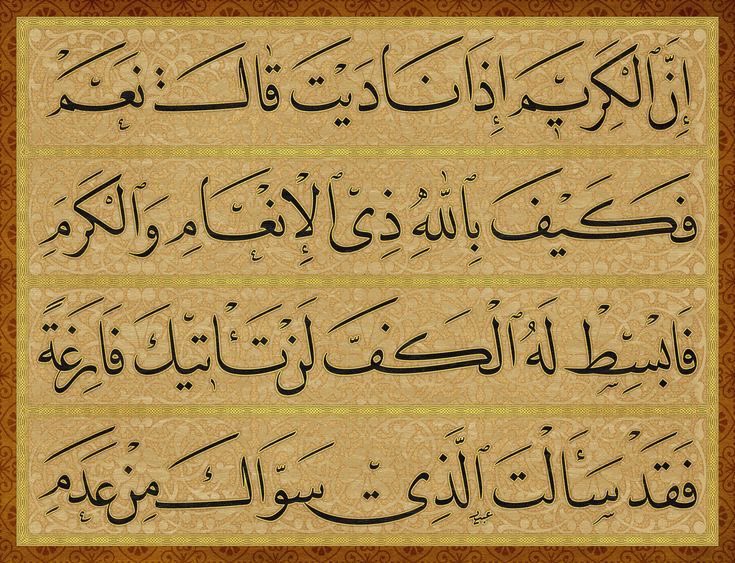 إِنَّ ٱلْكَرِيَّمَ إِذَا نَادَيْتَ قَالَ نَعَمْ
فَكَيْفَ بِٱللهِ ذِى ٱلْإِنْعَامِ وَٱلْكَرَمِ
فَابْسِطْ لَهُ ٱلْكَفَّ لَنْ تَأْتِيكَ فَارِغَةً
فَقَدْ سَأَلْتَ ٱلَّذِى سَوَّاكَ مِنْ عَدَمِ